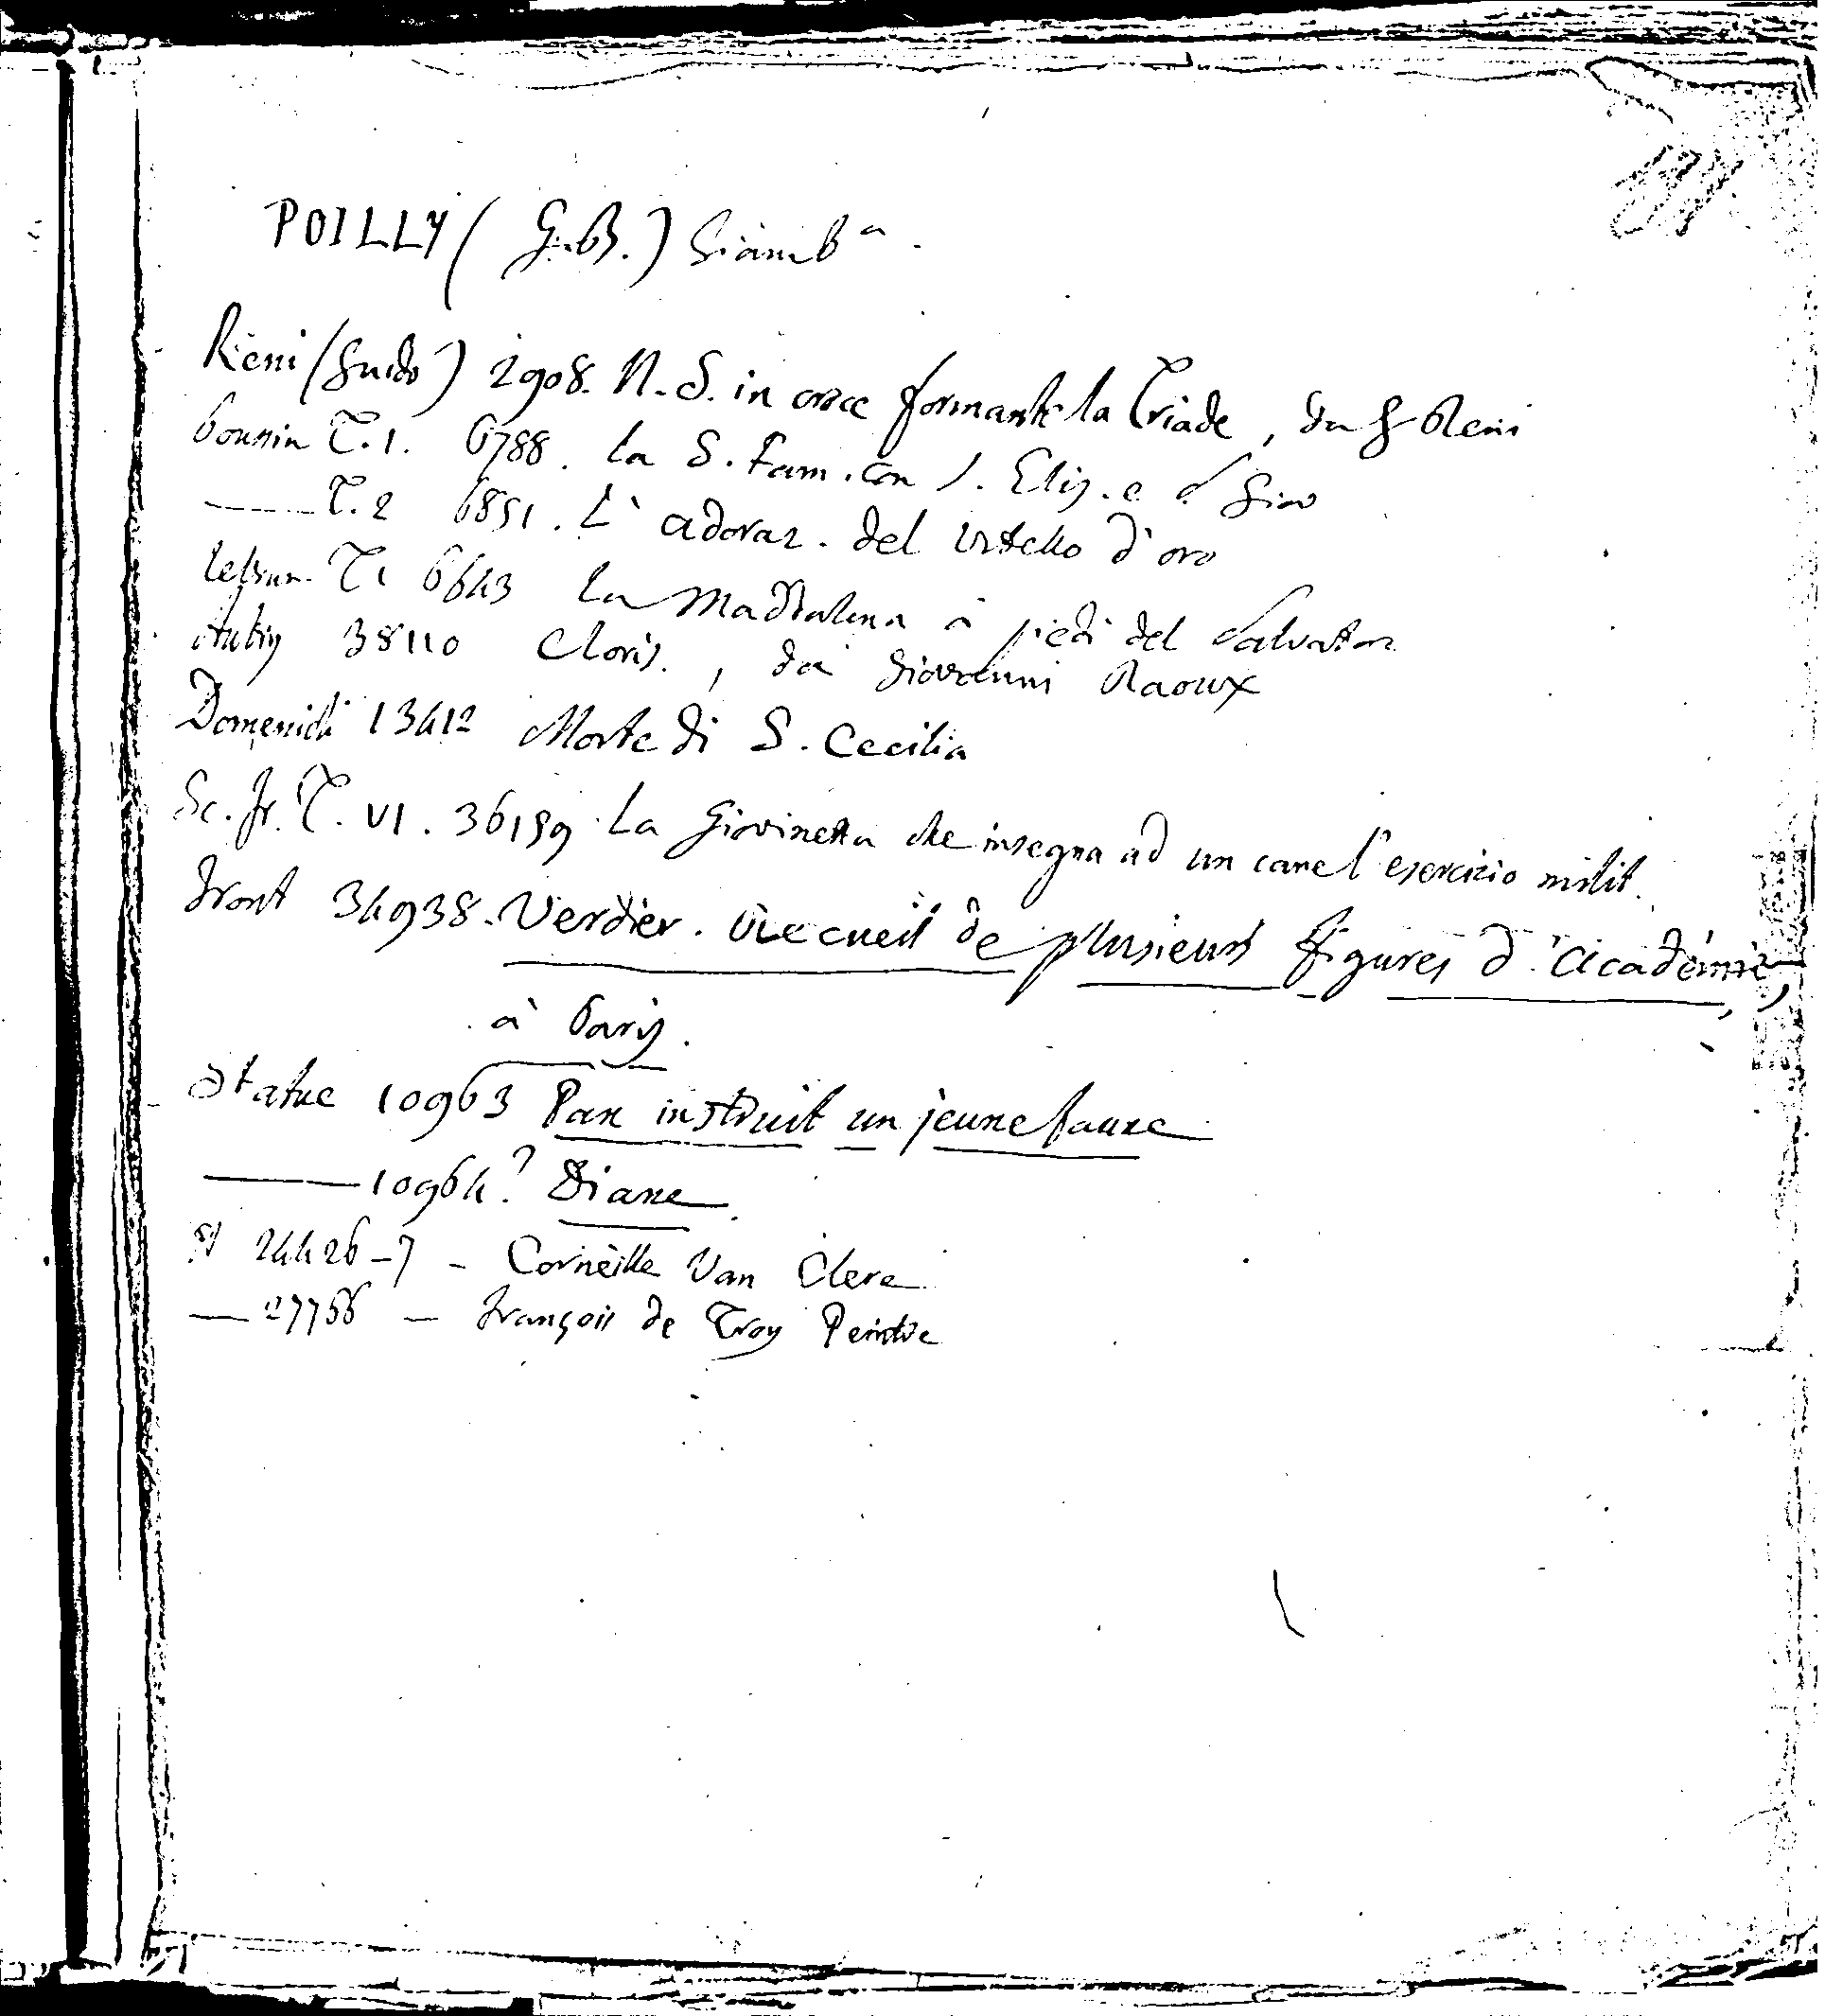 POILLY (G. B.) Giamb.a
Reni (Guido) 2908. N. S. in croce formante la Triade, da G Reni
Poussin T. 1. 6788. La S. Fam. con S. Eliz. e S Giov
—— T. 2 6851. L'adoraz. del vitello d'oro
Lebrun T. 1 6643 La Maddalena a piedi del Salvatore
38110 Cloris., da Giovanni Raoux
Domenich 13412 Morte di S. Cecilia
Sc. fr. T. VI. 36159. La Giovinetta che insegna ad un cane l'esercizio milit.
Front 34938. Verdier. Recueil de plusieurs figures d'Académie,
à Paris.
Statue 10963 Pan instruit un jeune faune
—— 10964? Diane
24426-7 - Corneille Van Cleve
— 27766 — François de Troy Peintre